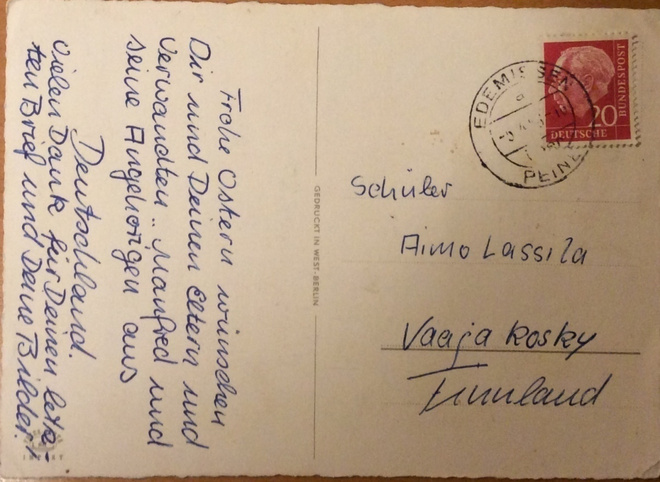 Frohe Ostern wünschen
Dir und Deinen Eltern und
Verwandten.. Manfred und
seine Angehörigen aus
Deutschland.
Vielen Dank für Deinen letz-
ten Brief und Deine Bilder!
GEDRUCKT IN WEST-BERLIN
EDEMISSEN
a
PEINE
20
DEUTSCHE
BUNDESPOST
Schüler
Aimo Lassila
Vaajakosky
Finnland